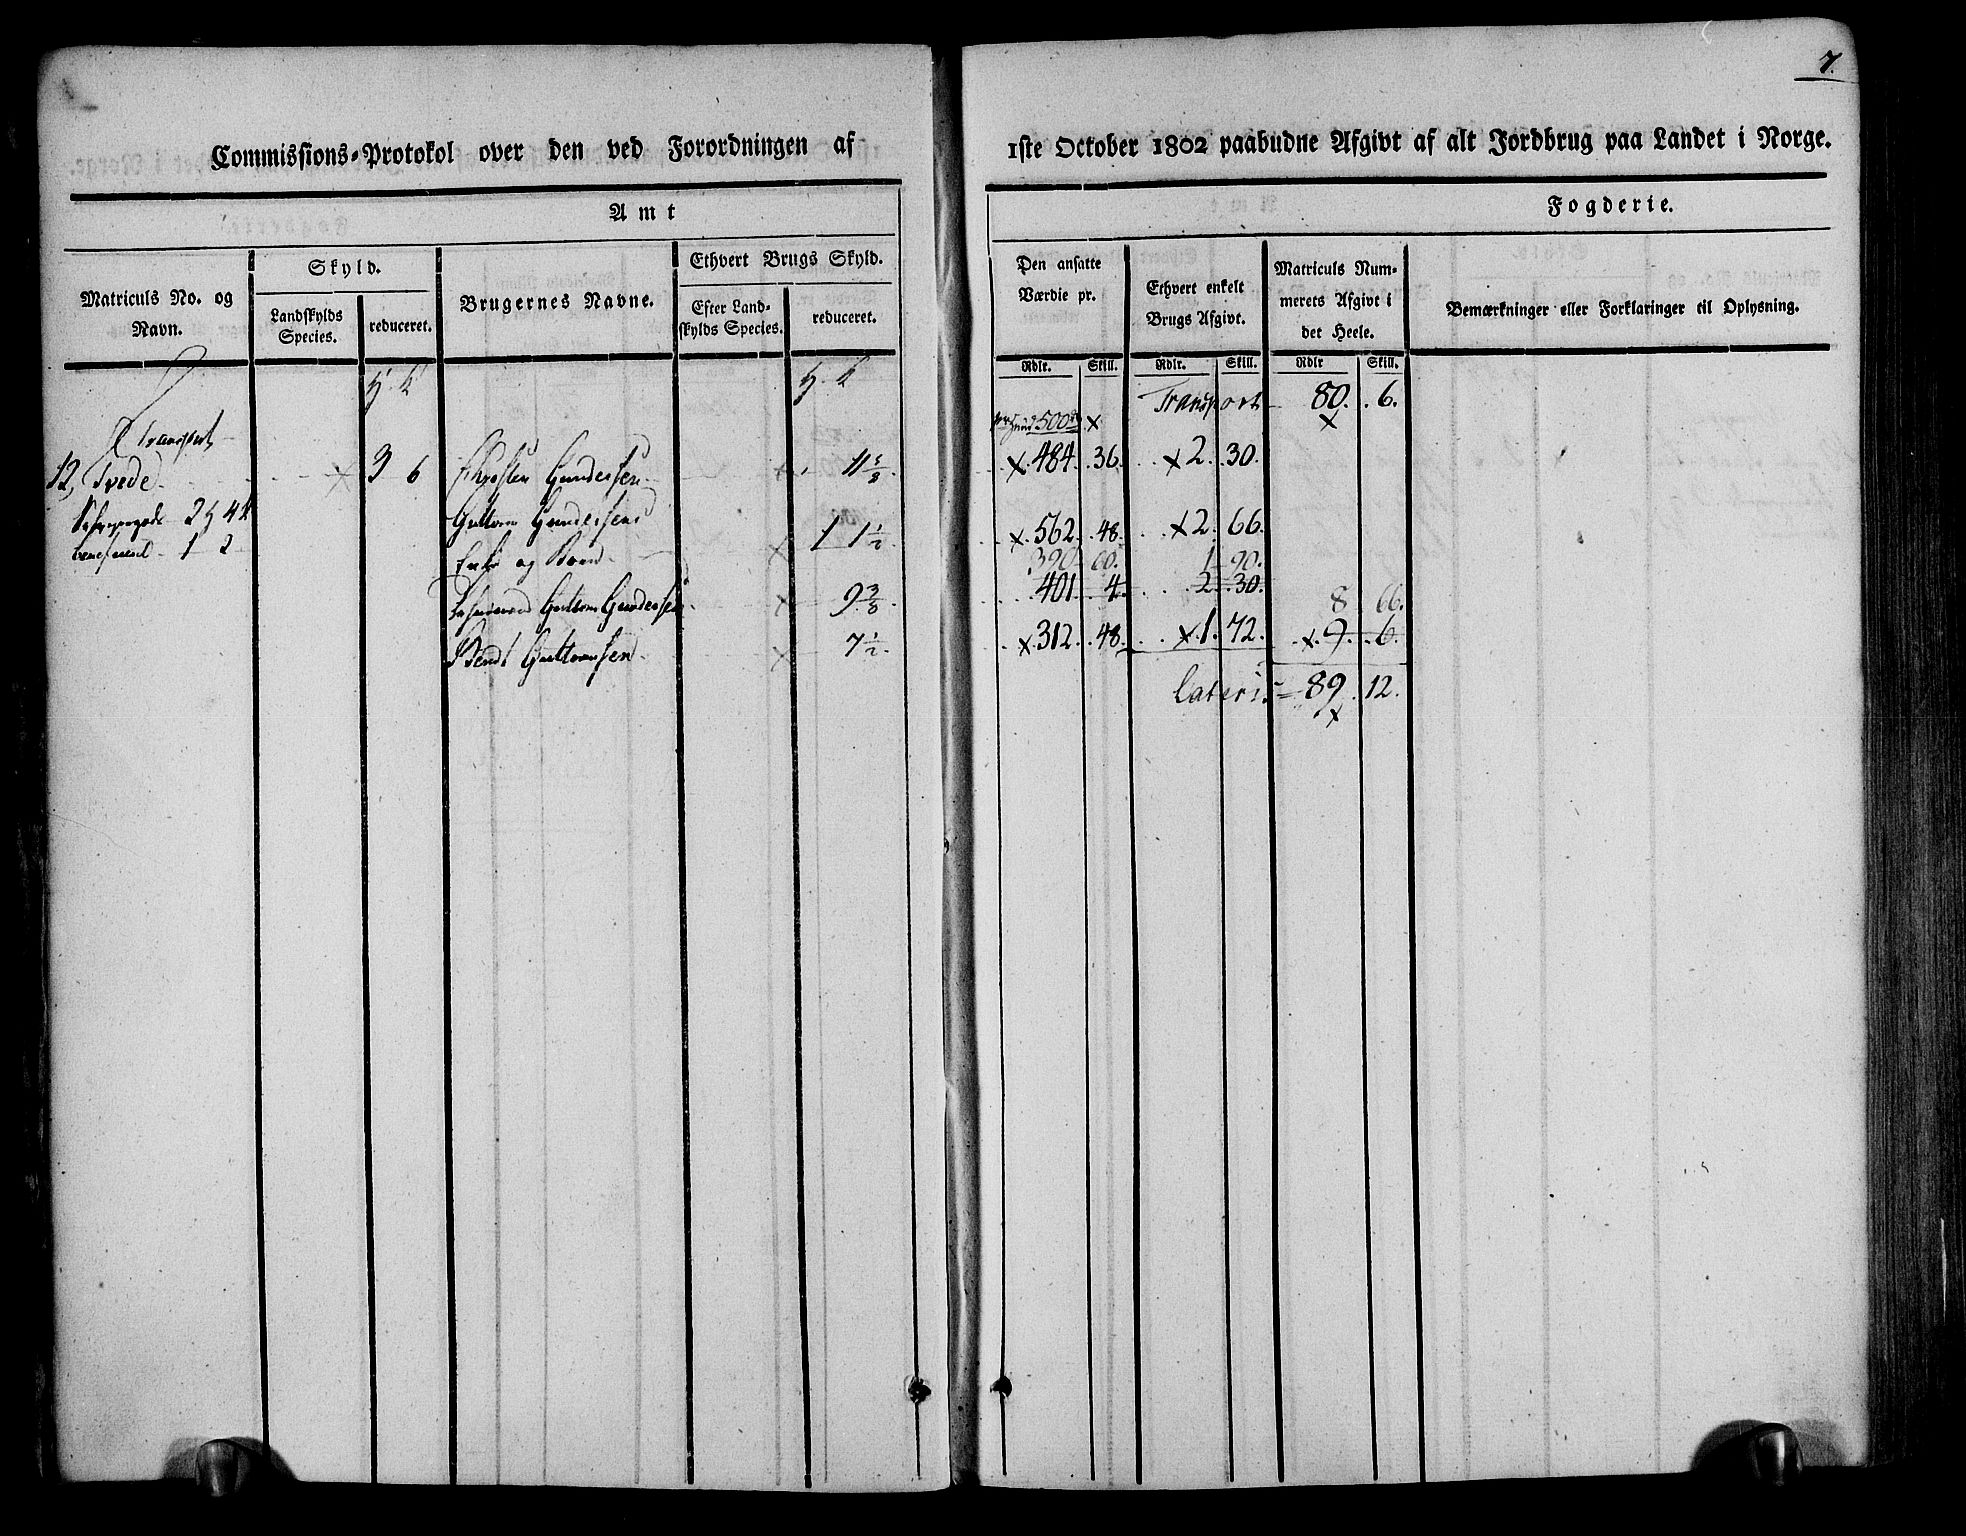 7.
Commissions-Protokol over den ved Forordningen af
1ste October 1802 paabudne Afgivt af alt Jordbrug paa Landet i Norge.
Amt
Fogderie.
Matriculs No. og Navn.
Skyld.
Landskylds Species.
reduceret.
Brugernes Navne.
Ethvert Brugs Skyld.
Efter Land-
skylds Species.
reduceret.
Den ansatte Værdie pr.
Rdlr. Skill.
Ethvert enkelt Brugs Afgivt.
Rdlr. Skill.
Matriculs Num-
merets Afgivt i
det Heele.
Rdlr Skill.
Bemærkninger eller Forklaringer til Oplysning.
Transport
Transport 80. 6.
500 x x
12, Tvede x 3 6 Gundersen x 11 5/8 x 484. 36. x 2. 30.
Guttorm Gundersens
Enke og x 1 1 1/2 x 562. 48. x 2. 66.
390 60. 1 90.
Guttorm Gundersen x 9 3/8 401. 4. 2. 30.
8 66.
Bendt Guttormsen x 7 1/2. x 312. 48. x 1. 72. x 9. 6.
Lateris 89. 12.
x